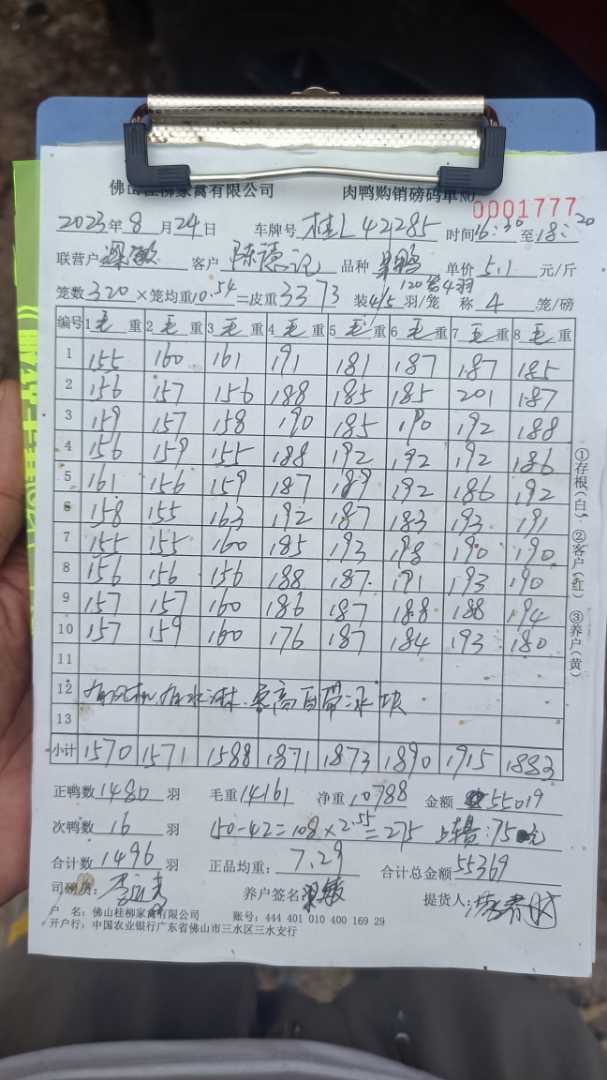 佛山桂柳家禽有限公司 肉鸭购销磅码单 №
0001777
2023年8月24日 车牌号 桂L42285 时间16:30至18:20
联营户 梁敏 客户 品种 单价 5.1 元/斤
笼数320×笼均重10.54=皮重3373 装4/5羽/笼 称4笼/磅
120笼4羽
编号 1毛重 2毛重 3毛重 4毛重 5毛重 6毛重 7毛重 8毛重
1 155 160 161 191 181 187 187 185
2 156 157 156 188 185 185 201 187
3 159 157 158 190 185 190 192 188
4 156 159 155 188 192 192 192 186
5 161 156 159 187 189 192 186 192
6 158 155 163 192 187 183 193 191
7 155 155 160 185 193 198 190 190
8 156 156 156 188 187 191 193 190
9 157 157 160 186 187 188 188 194
10 157 159 160 176 187 184 193 180
11
12 有风机.有水淋.
13
小计 1570 1571 1588 1871 1873 1890 1915 1883
①存根(白) ②客户(红) ③养户(黄)
正鸭数1480羽 毛重14161 净重10788 金额55019
次鸭数16羽 150-42=108×2.55=275 :75元
合计数1496羽 正品均重:7.29 合计总金额55369
养户签名 梁敏 提货人:
户 名:佛山桂柳家禽有限公司 账号:444 401 010 400 169 29
开户行:中国农业银行广东省佛山市三水区三水支行